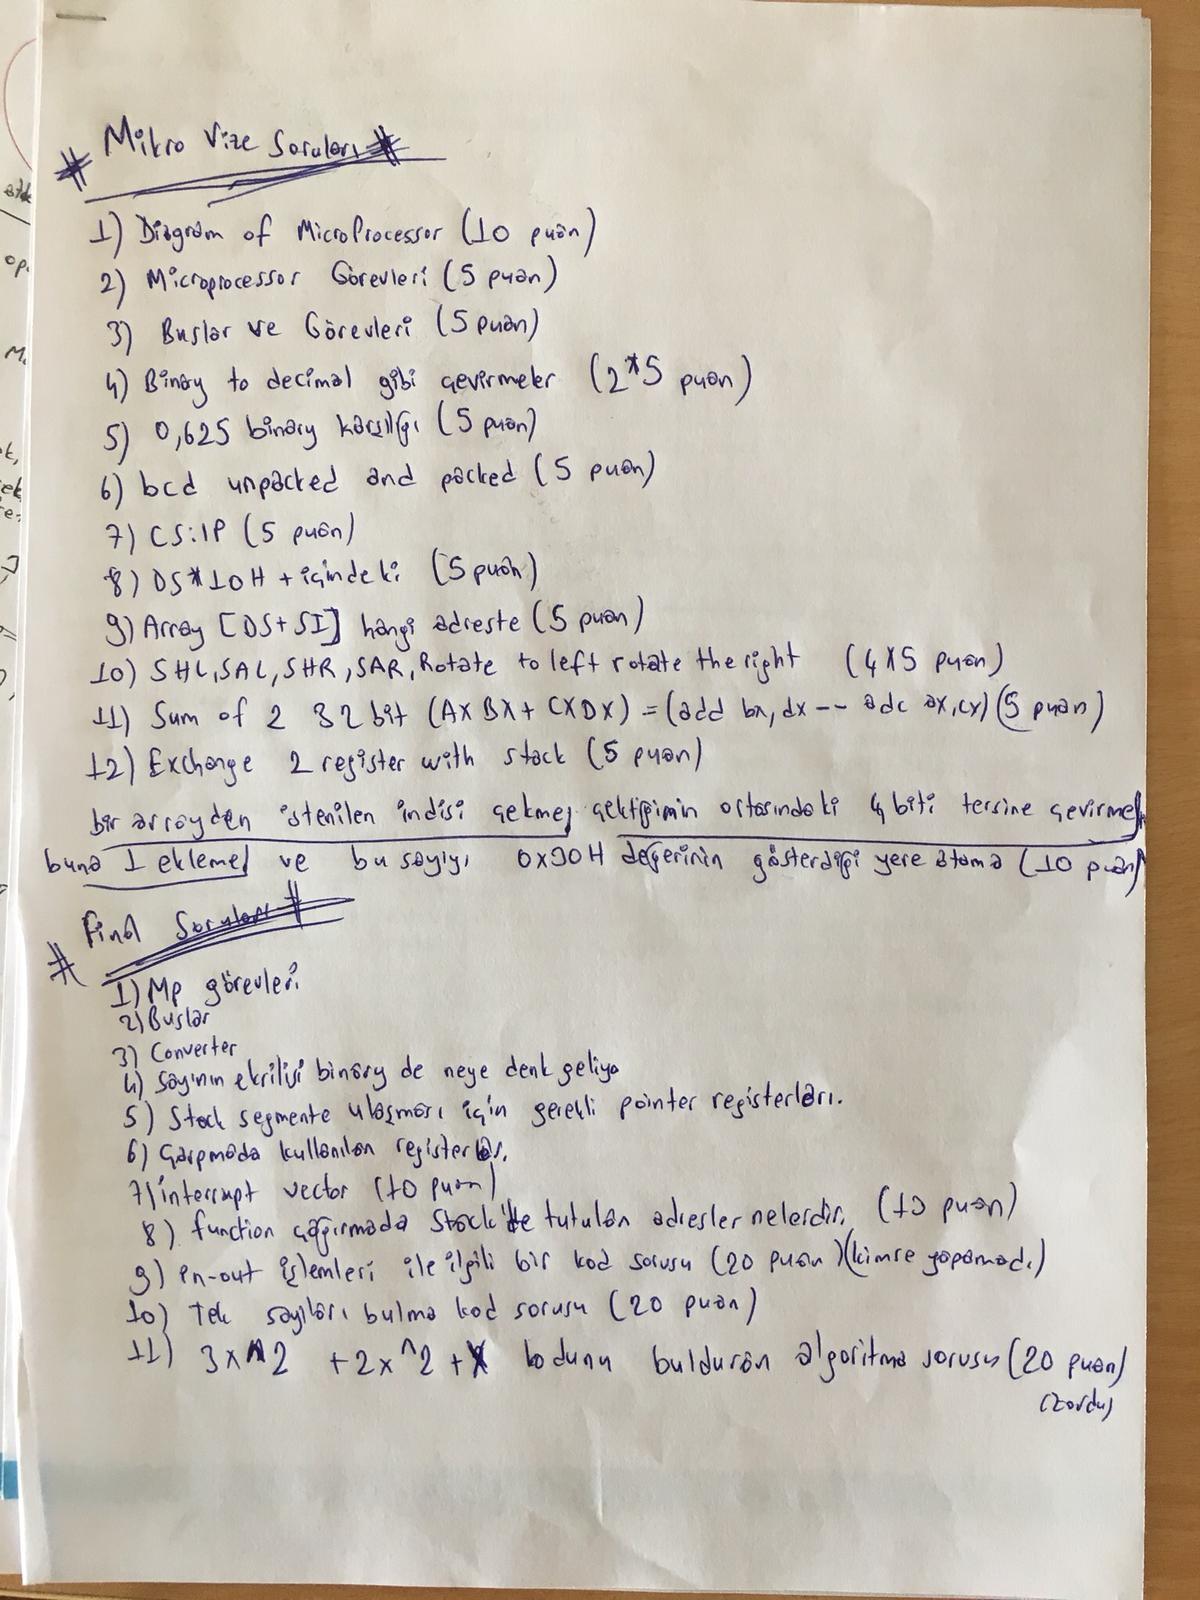 # Mikro Vize Soruları #
1) Diagram of MicroProcessor (10 puan)
2) Microprocessor Görevleri (5 puan)
3) Buslar ve Görevleri (5 puan)
4) Binary to decimal gibi çevirmeler (2*5 puan)
5) 0,625 binary karşılığı (5 puan)
6) bcd unpacked and packed (5 puan)
7) CS:IP (5 puan)
8) DS*10H + içindeki (5 puan)
9) Array [DS+SI] hangi adreste (5 puan)
10) SHL, SAL, SHR, SAR, Rotate to left rotate the right (4x5 puan)
11) Sum of 2 32 bit (AX BX + CX DX) = (add bx, dx -- adc ax, cx) (5 puan)
12) Exchange 2 register with stack (5 puan)
bir arrayden istenilen indisi çekme, çektiğimin ortasındaki 4 biti tersine çevirme,
buna 1 ekleme, ve bu sayıyı 0x30H değerinin gösterdiği yere atama (10 puan)
# Final Soruları #
1) Mp görevleri
2) Buslar
3) Converter
4) Sayının ekrilisi binary de neye denk geliyo
5) Stack segmente ulaşması için gerekli pointer registerları.
6) Çarpmada kullanılan registerlar.
7) interrupt vector (10 puan)
8) function çağırmada Stack'te tutulan adresler nelerdir. (10 puan)
9) in-out işlemleri ile ilgili bir kod sorusu (20 puan) (kimse yapamadı)
10) Tek sayıları bulma kod sorusu (20 puan)
11) 3x^2 + 2x^2 + X kodunu bulduran algoritma sorusu (20 puan)
(zordu)